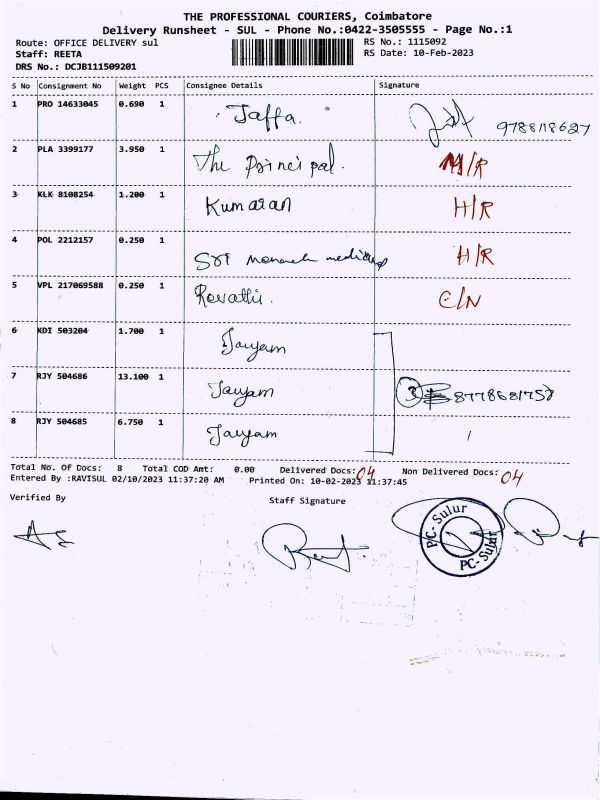 THE PROFESSIONAL COURIERS, Coimbatore
Delivery Runsheet - SUL - Phone No.:0422-3505555 - Page No.:1
Route: OFFICE DELIVERY sul
Staff: REETA
DRS No.: DCJB111509201
RS No.: 1115092
RS Date: 10-Feb-2023
S No Consignment No Weight PCS Consignee Details Signature
1 PRO 14633045 0.690 1 Jaffa. 9788118627
2 PLA 3399177 3.950 1 The Principal. /R
3 KLK 8108254 1.200 1 Kumaran H/R
4 POL 2212157 0.250 1 Sri medicals H/R
5 VPL 217069588 0.250 1 Revathi. C/N
6 KDI 503204 1.700 1 Jayam
7 RJY 504686 13.100 1 Jayam 3
8 RJY 504685 6.750 1 Jayam
Total No. Of Docs: 8 Total COD Amt: 0.00 Delivered Docs: 04 Non Delivered Docs: 04
Entered By :RAVISUL 02/10/2023 11:37:20 AM Printed On: 10-02-2023 11:37:45
Verified By
Staff Signature
PC- Sulur
PC- Sulur